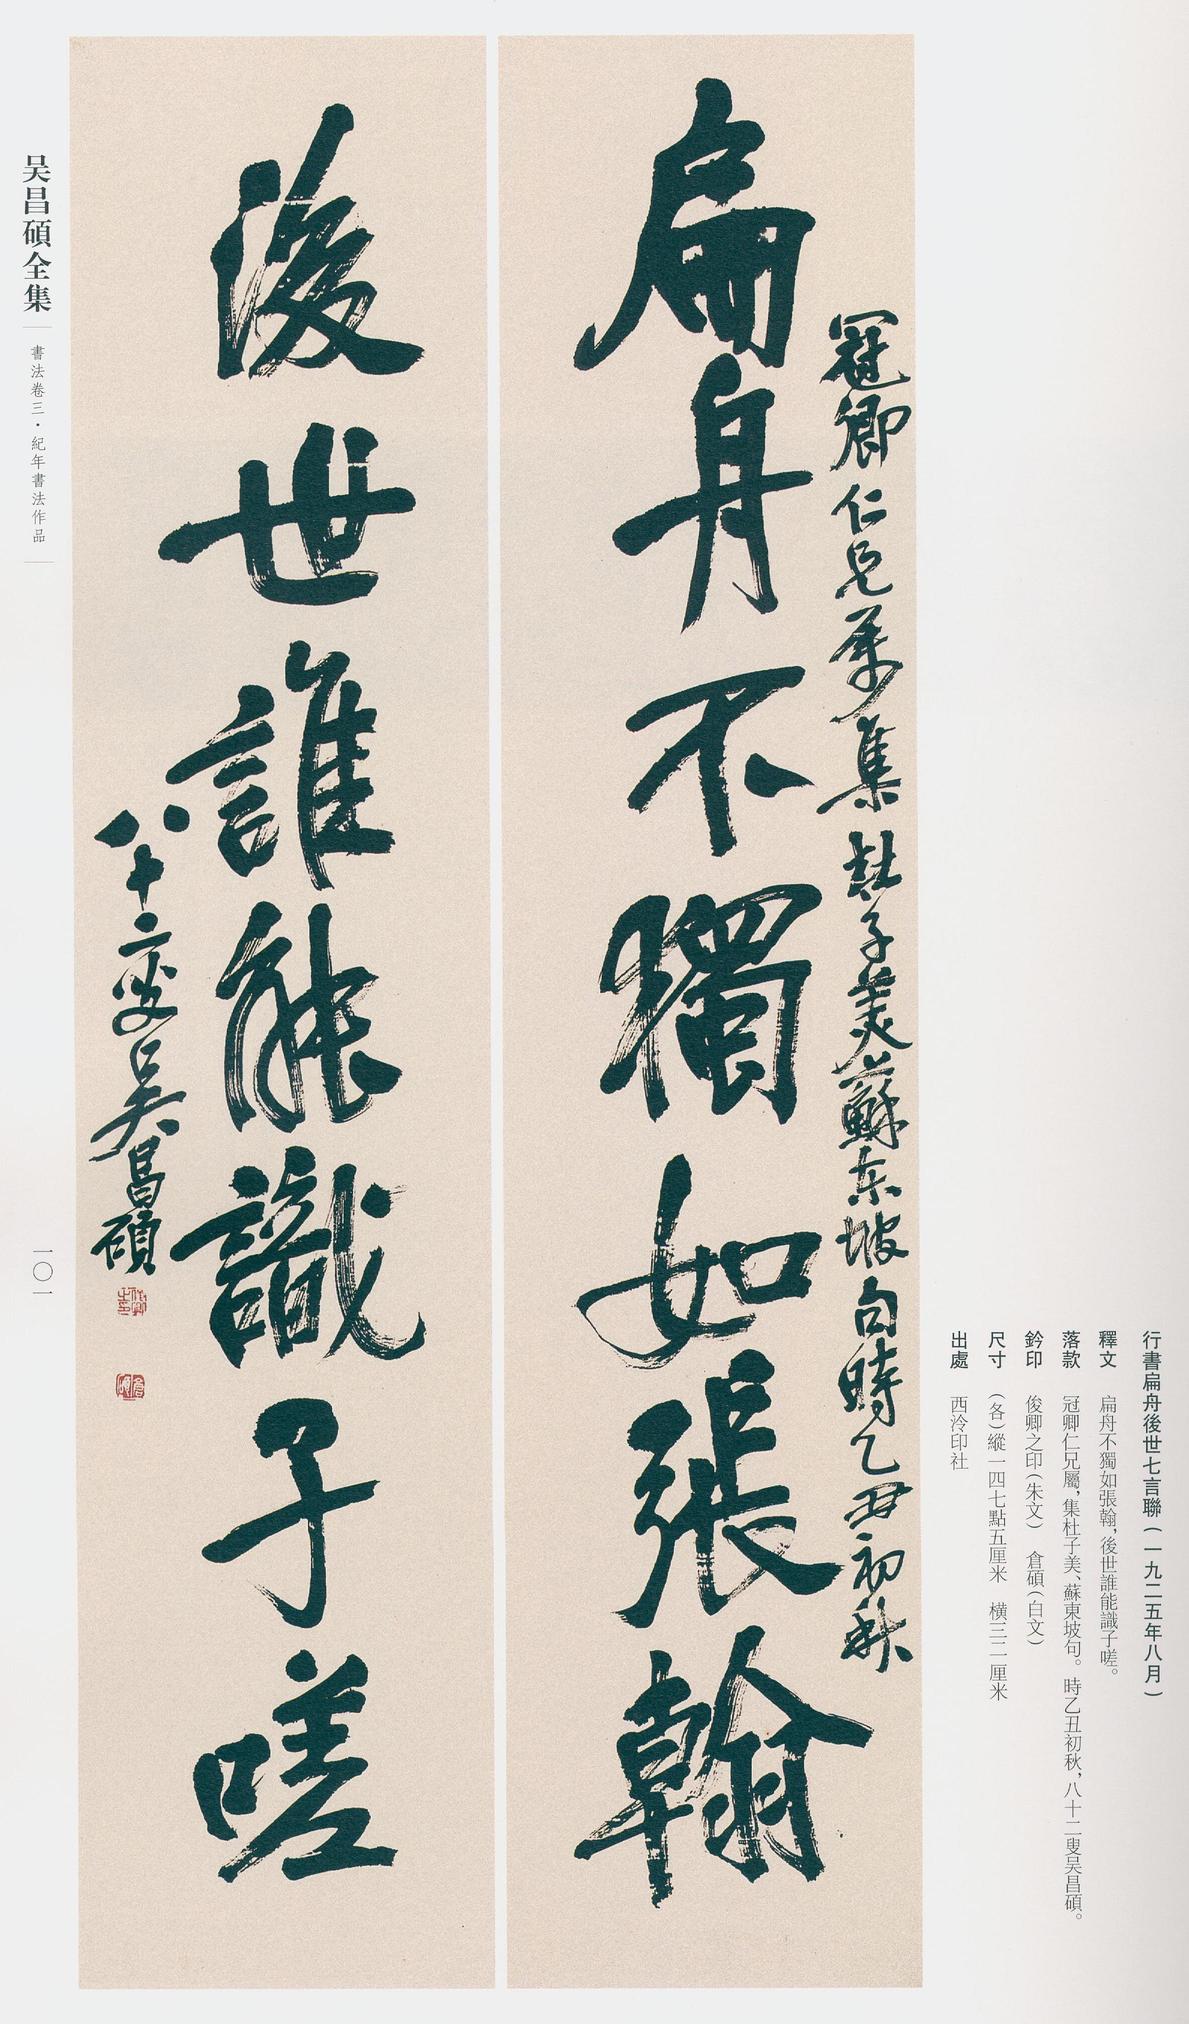 行書扁舟後世七言聯（一九二五年八月）
釋文　扁舟不獨如張翰，後世誰能識子嗟。
落款　冠卿仁兄屬，集杜子美、蘇東坡句。時乙丑初秋，八十二叟吴昌碩。
鈐印　俊卿之印（朱文）　倉碩（白文）
尺寸　（各）縱一四七點五厘米　橫三二厘米
出處　西泠印社
冠卿仁兄屬集杜子美蘇东坡句時乙丑初秋
扁舟不獨如張翰
後世誰能識子嗟
八十二叟吴昌碩
俊卿之印
倉碩
吴昌碩全集
書法卷三・紀年書法作品
一〇一